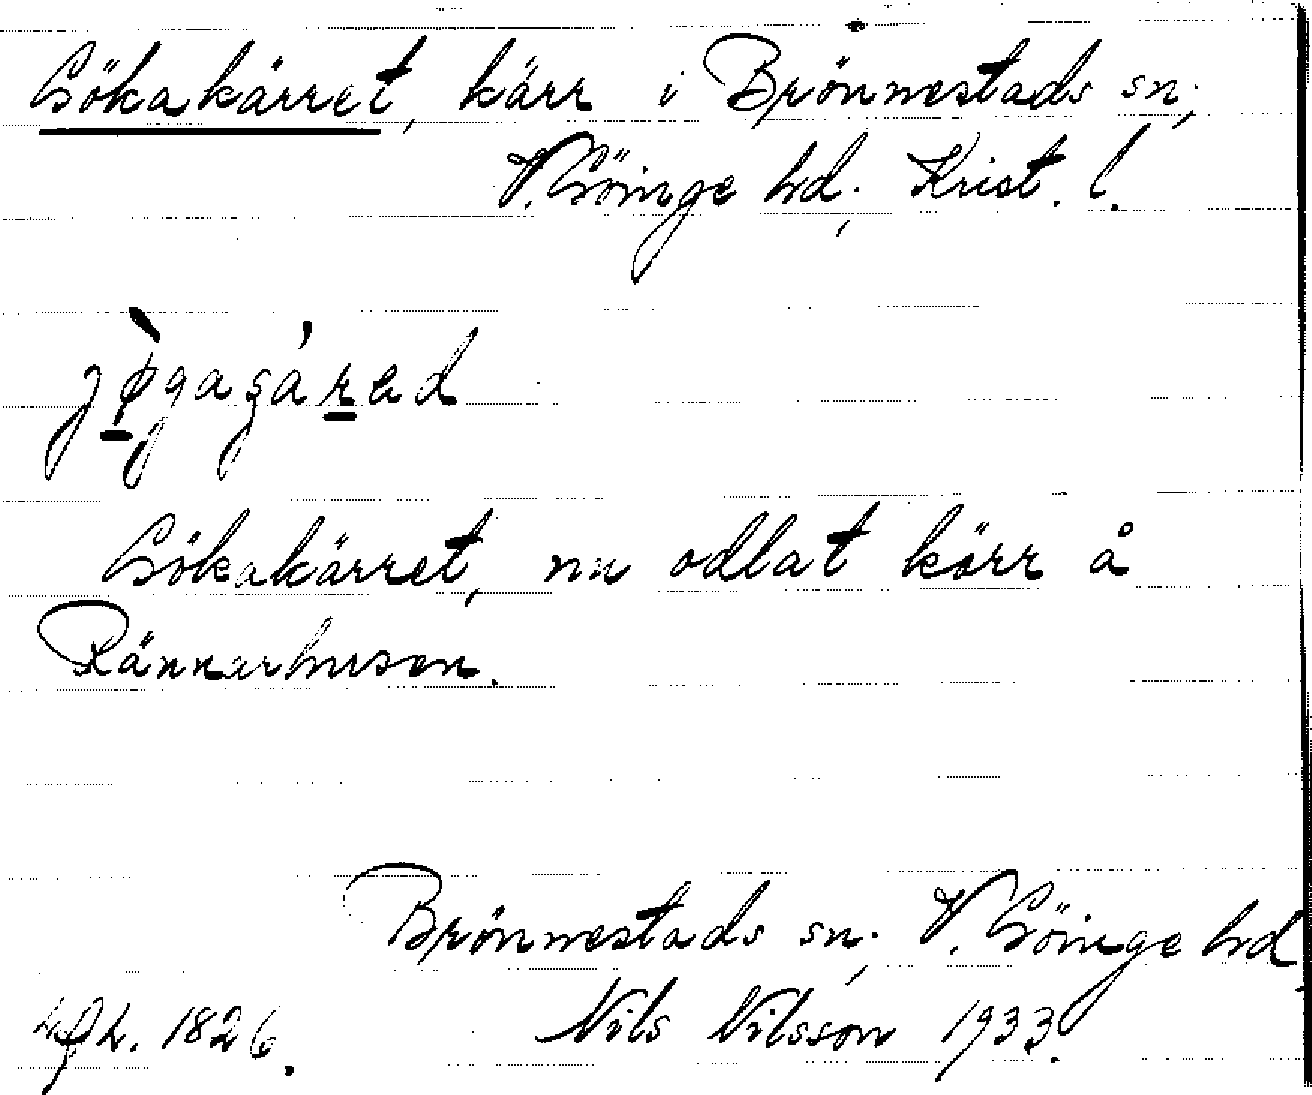 Gökakärret, kärr i Brönnestads sn;
V. Göinge hd; Krist. l.
Gökakärret, nu odlat kärr å
Rännarhusen.
Brönnestads sn; V. Göinge hd
1826. Nils Nilsson 1933.